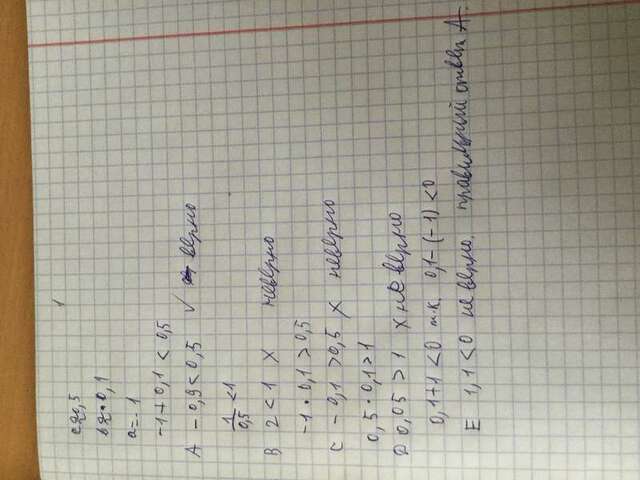 1
c=0,5
b=0,1
a=-1
-1+0,1<0,5
A -0,9<0,5 ✓ верно
1/0,5 <1
B 2<1 X неверно
-1·0,1>0,5
C -0,1>0,5 X неверно
0,5·0,1>1
D 0,05>1 X не верно
0,1+1<0 т.к. 0,1-(-1)<0
E 1,1<0 не верно. правильный ответ А.